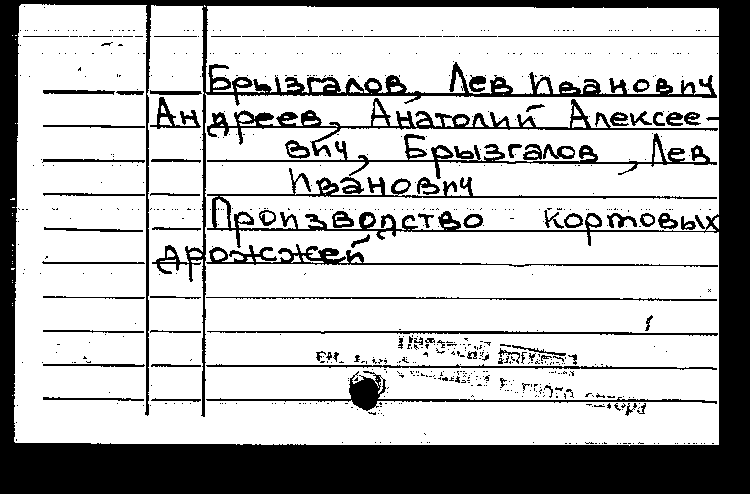 Брызгалов, Лев Иванович
Андреев, Анатолий Алексее-
вич, Брызгалов, Лев
Иванович
Производство кортовых
дрожжей
первого автора